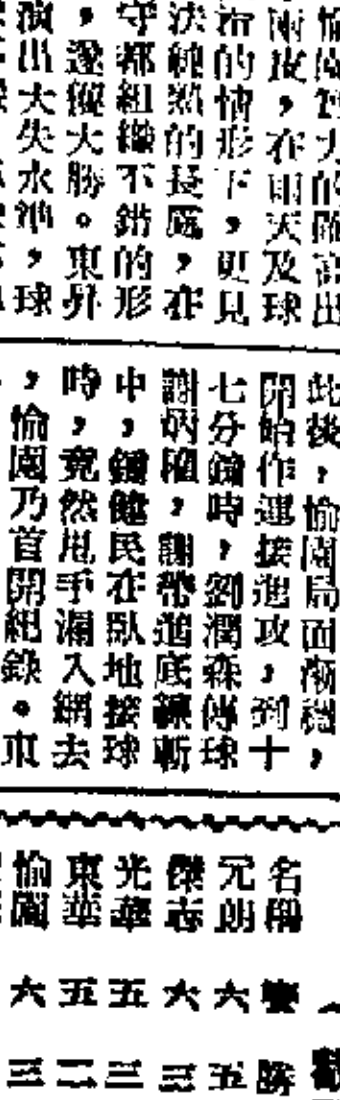 愉園實力的確高出
兩皮，在雨天及球
的情形下，更見
決純熟的長處，在
守都組織不錯的形
，遂獲大勝。東昇
演出大失水準，球
此後，愉園局面漸穩，
開始作連接進攻，到十
七分鐘時，劉潤森傳球
謝炳權，謝帶進底線斬
中，鍾健民在臥地接球
時，竟然甩手漏入網去
，愉園乃首開紀錄。東
名稱 賽 勝
元朗 六 五
傑志 六 三
光華 五 三
東華 五 二
愉園 六 三